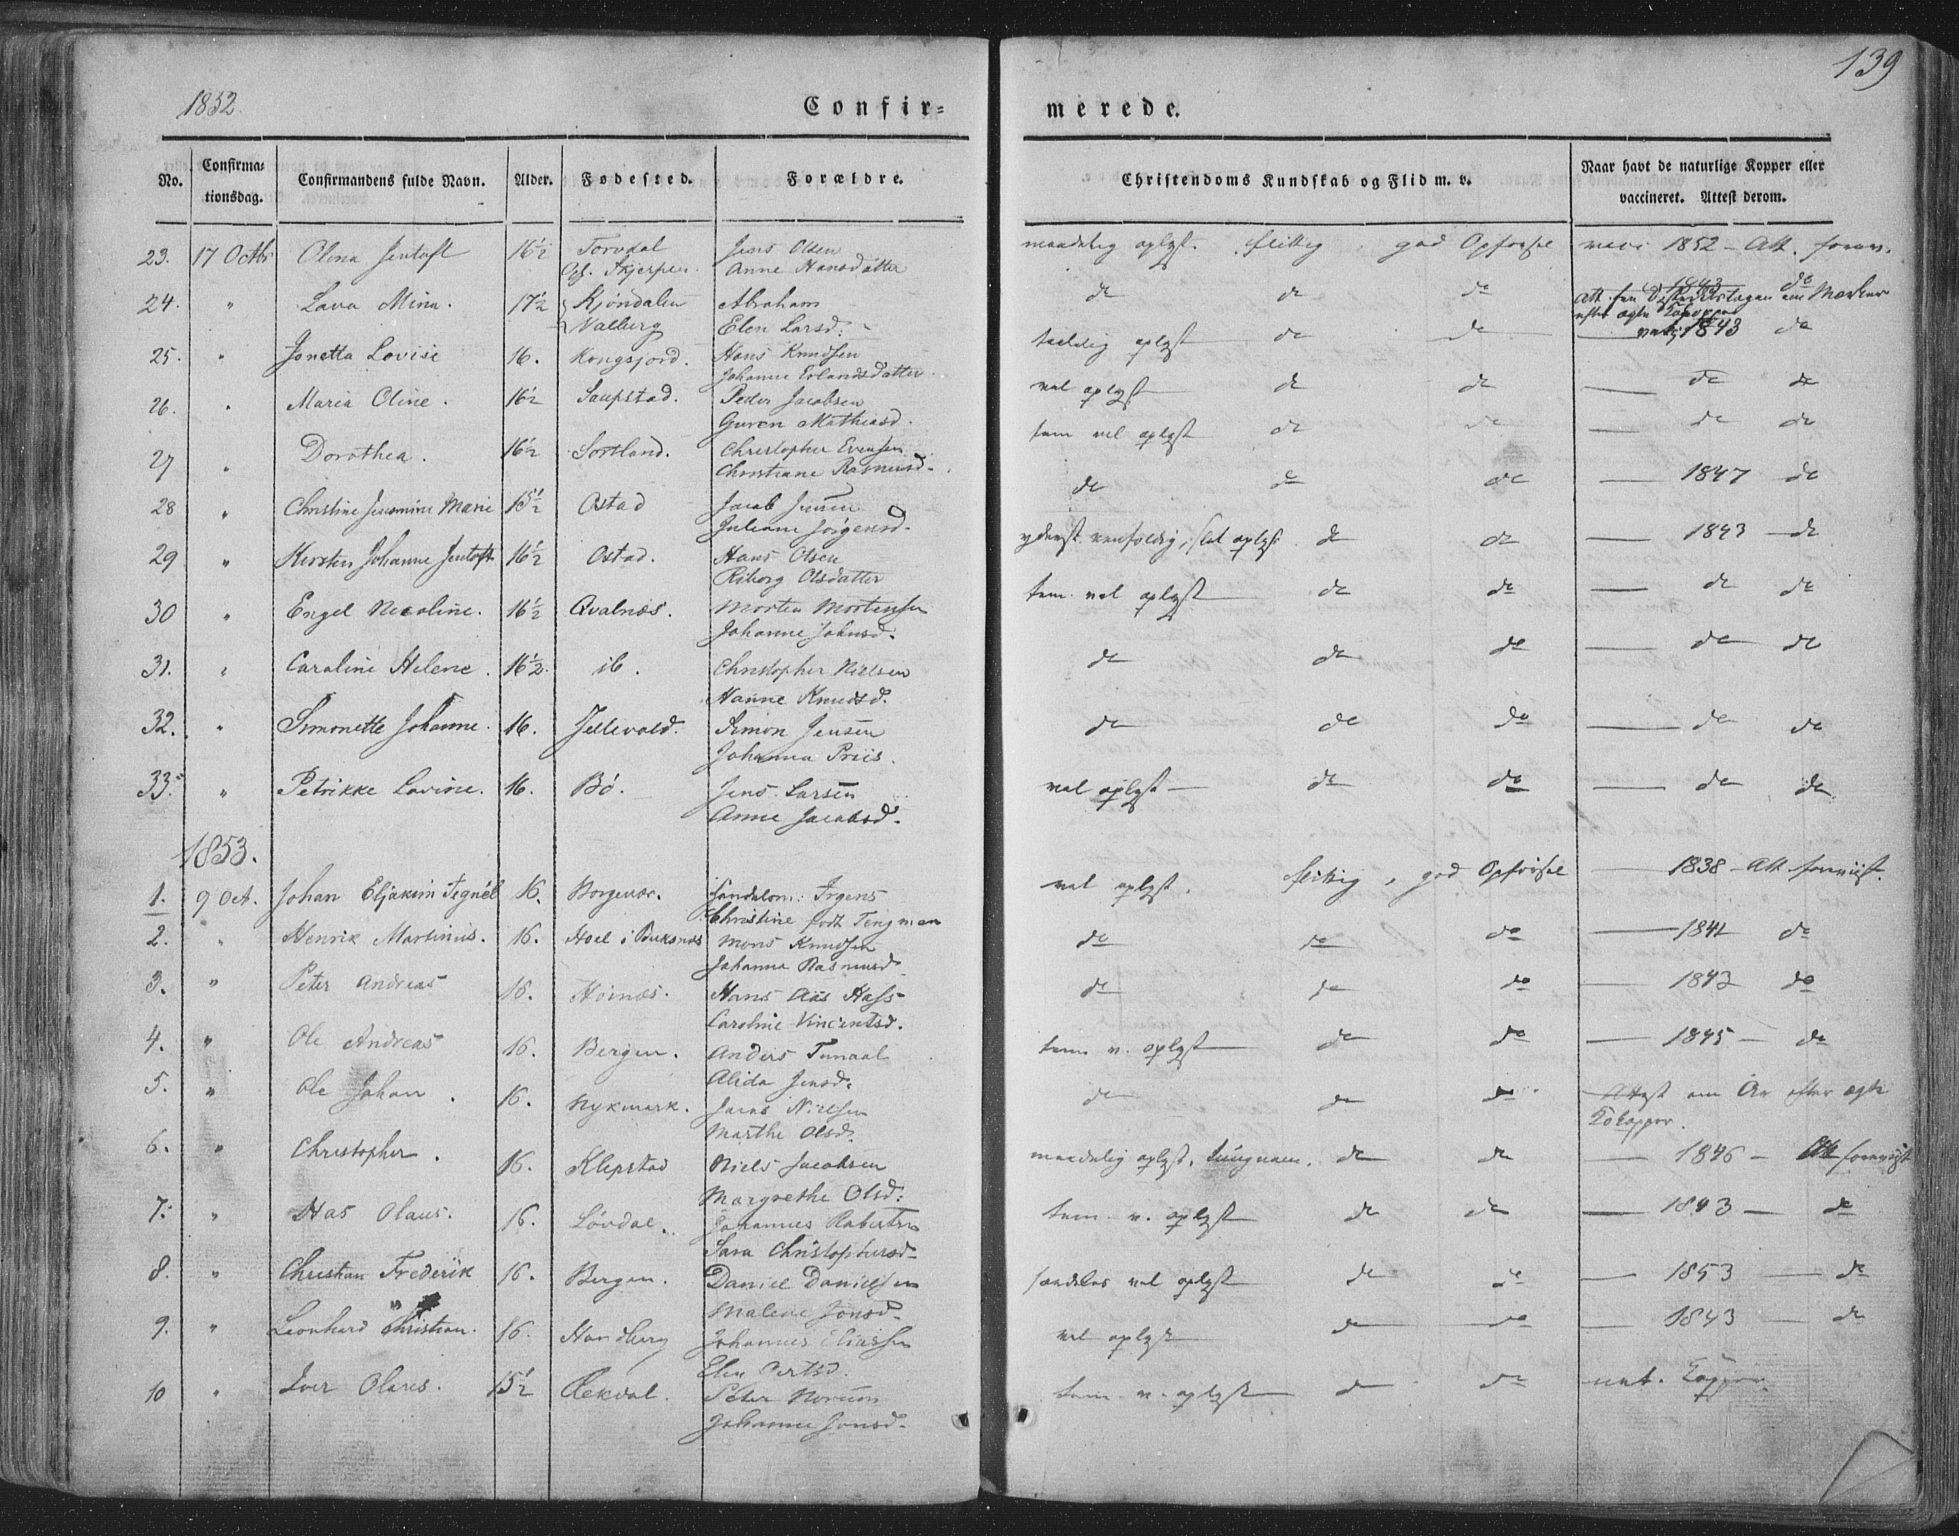 139
1852.
Confir=
merede.
No.
Confirma=
tionsdag.
Confirmandens fulde Navn.
Alder.
Fødested.
Forældre.
Christendoms Kundskab og Flid m. v.
Naar havt de naturlige Kopper eller
vaccineret. Attest derom.
23. 17 Octb Olina Jentoft 16½ Torvdal Jens Olsen maadelig oplyst. flittig, god Opførsel vacc. 1852 - Att. forev.
Anne Hansdatter
24. " Lava Mina. 17½ Kjøndalen Abraham do do do 1843 do
Valberg Elen Larsd.
25. " Jonetta Lovise 16. Kongsjord. Hans Knudsen taalelig oplyst do do 1843 do
Johanne Erlandsdatter
26. " Maria Oline. 16½ Saupstad. Peder Jacobsen vel oplyst do do — do do
Guren Mathiasd.
27 " Dorothea. 16½ Sortland. Christopher Evensen tem vel oplyst do do — do do
Christiane Rasmusd.
28 " Christine Jensmine Marie 15½ Ostad Jacob Jensen do do do — 1847 do
Juliane Jörgensd.
29 " Kirsten Johanne Jentoft 16½ Ostad. Hans Olsen yderst eenfoldig, slet oplyst do do — 1843 — do
Riborg Olsdatter
30 " Engel Nicoline. 16½ Qvalnæs. Morten Mortensen tem. vel oplyst do do — do do
Johanne Johnsd.
31. " Caroline Helene. 16½. ib. Christopher Nielsen do do do — do do
Hanne Knudsd.
32. " Simonette Johanne. 16. Jellevold. Simon Jensen do do do — do do
Johanna Priis.
33. " Petrikke Lovine. 16. Bö. Jens Larsen vel oplyst — do do — do do
Anne Jacobsd.
1853.
1. 9 Oct. Johan Eljakim Tegnél 16. Borgevær. Handelsm: Irgens vel oplyst. flittig, god Opførsel — 1838 - Att. foreviist.
Christine født Tengman
2. " Henrik Martinus. 16. Hoel i Buksnæs Mons Knudsen do do do — 1841 do
Johanna Rasmusd
3. " Peter Andreas 16. Höinæs. Hans Aas Hass do do do — 1843 do
Caroline Vincentsd.
4. " Ole Andreas 16. Bergen. Anders Tunaal tem v. oplyst do do — 1845 - do
Alida Jensd.
5. " Ole Johan. 16. Nykmark. Jacob Nielsen do do do Attest om Ar efter ægte
Marthe Olsd. Kokopper.
6. " Christopher. 16. Klepstad Niels Jacobsen maadelig oplyst, tungnem. do do — 1846 - Att forevist
Margrethe Olsd:
7. " Has Olaus. 16. Lövdal. Johannes Robertsen tem. v. oplyst do do — 1843 — do
Sara Christophersd.
8. " Christian Frederik 16. Bergen. Daniel Danielsen særdeles vel oplyst do do — 1853 — do
Malene Jonsd.
9. " Leonhard Christian. 16. Handberg Johannes Eliassen vel oplyst do do — 1843 — do
Elen Bertsd.
10 " Iver Olares. 15½ Oekdal. Peter Norum tem. v. oplyst do do nat. Kopper
Johanna Jonsd.